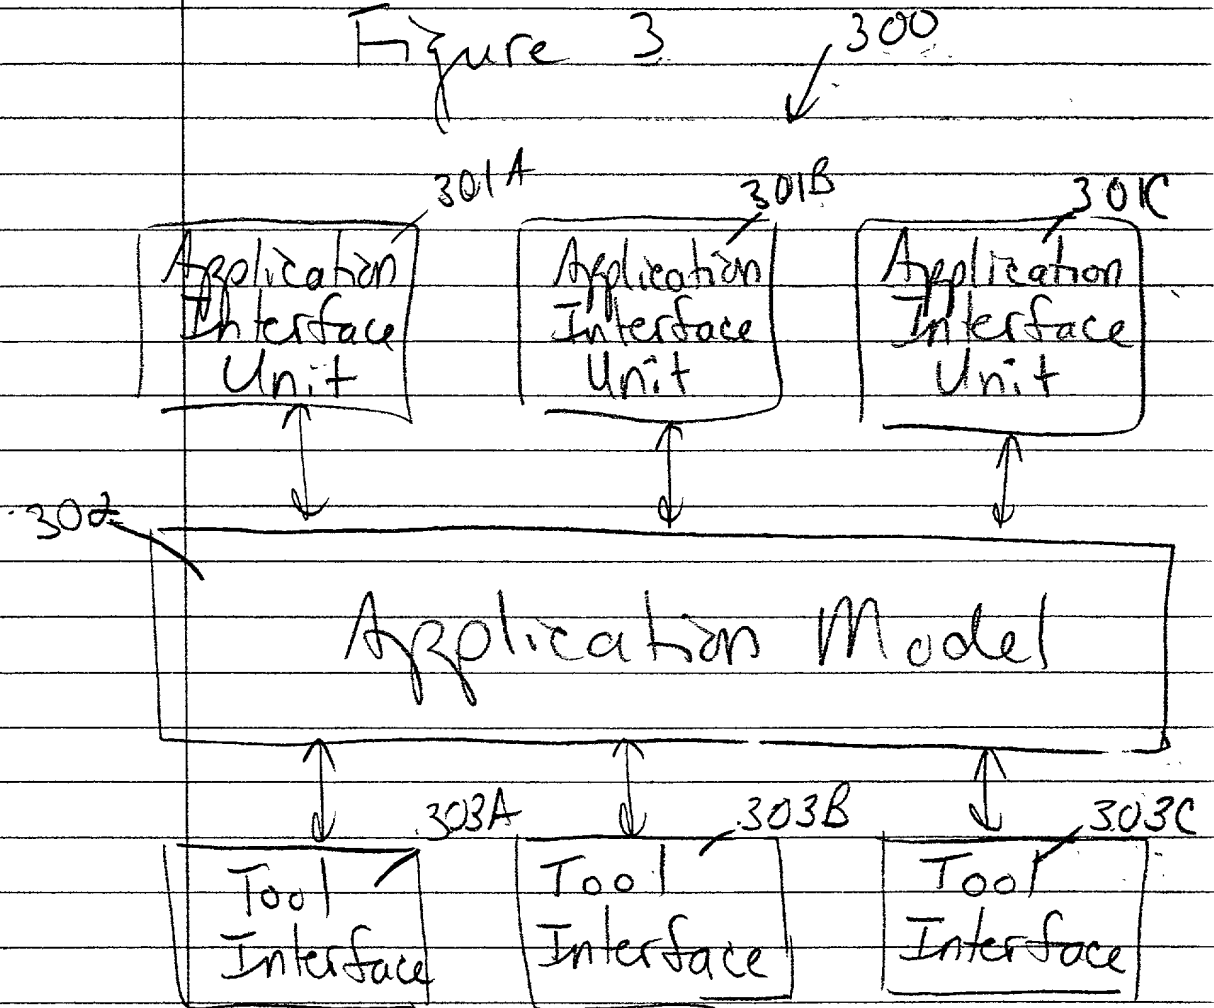 Figure 3
300
301A
301B
301C
Application
Interface
Unit
Application
Interface
Unit
Application
Interface
Unit
302
Application Model
303A
303B
303C
Tool
Interface
Tool
Interface
Tool
Interface